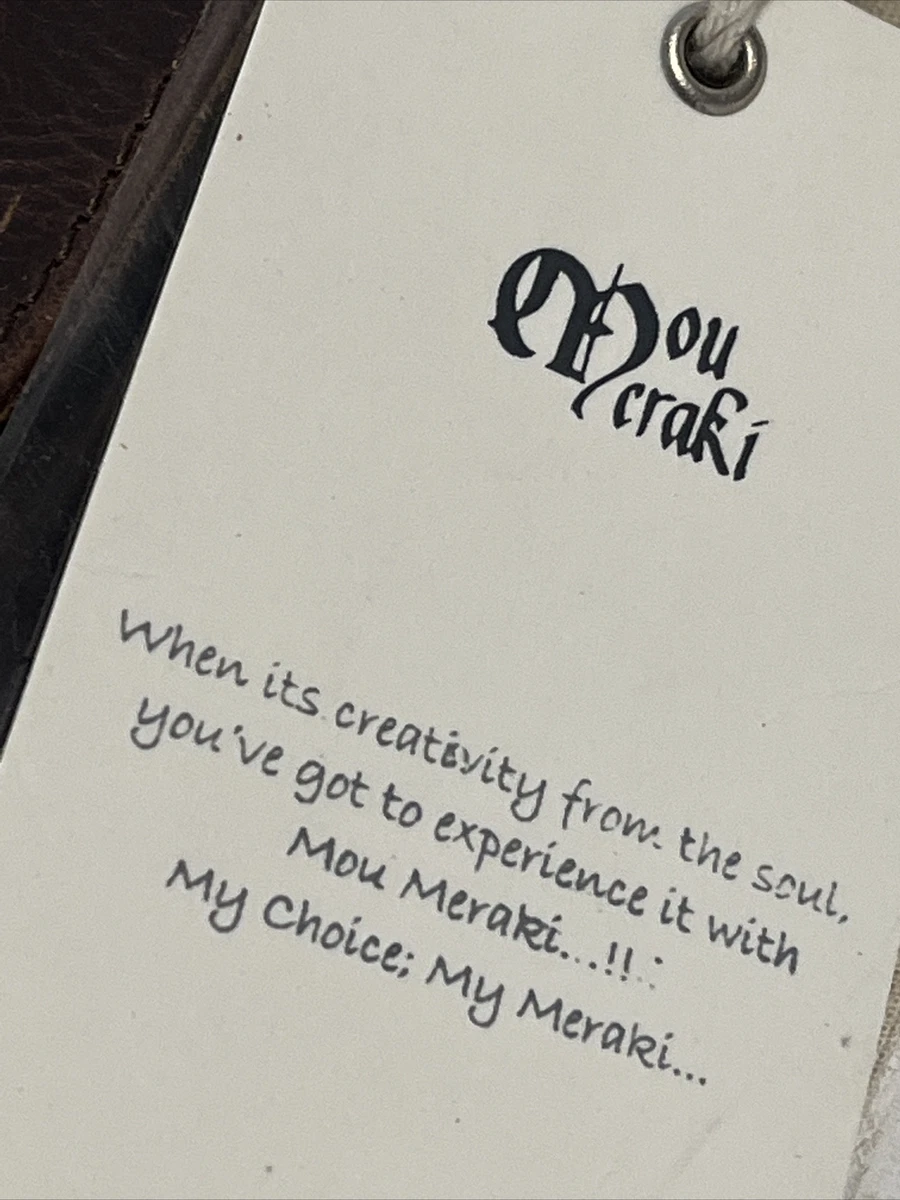 Mou
Meraki
When its creativity from the soul,
you've got to experience it with
Mou Meraki...!!
My Choice; My Meraki...